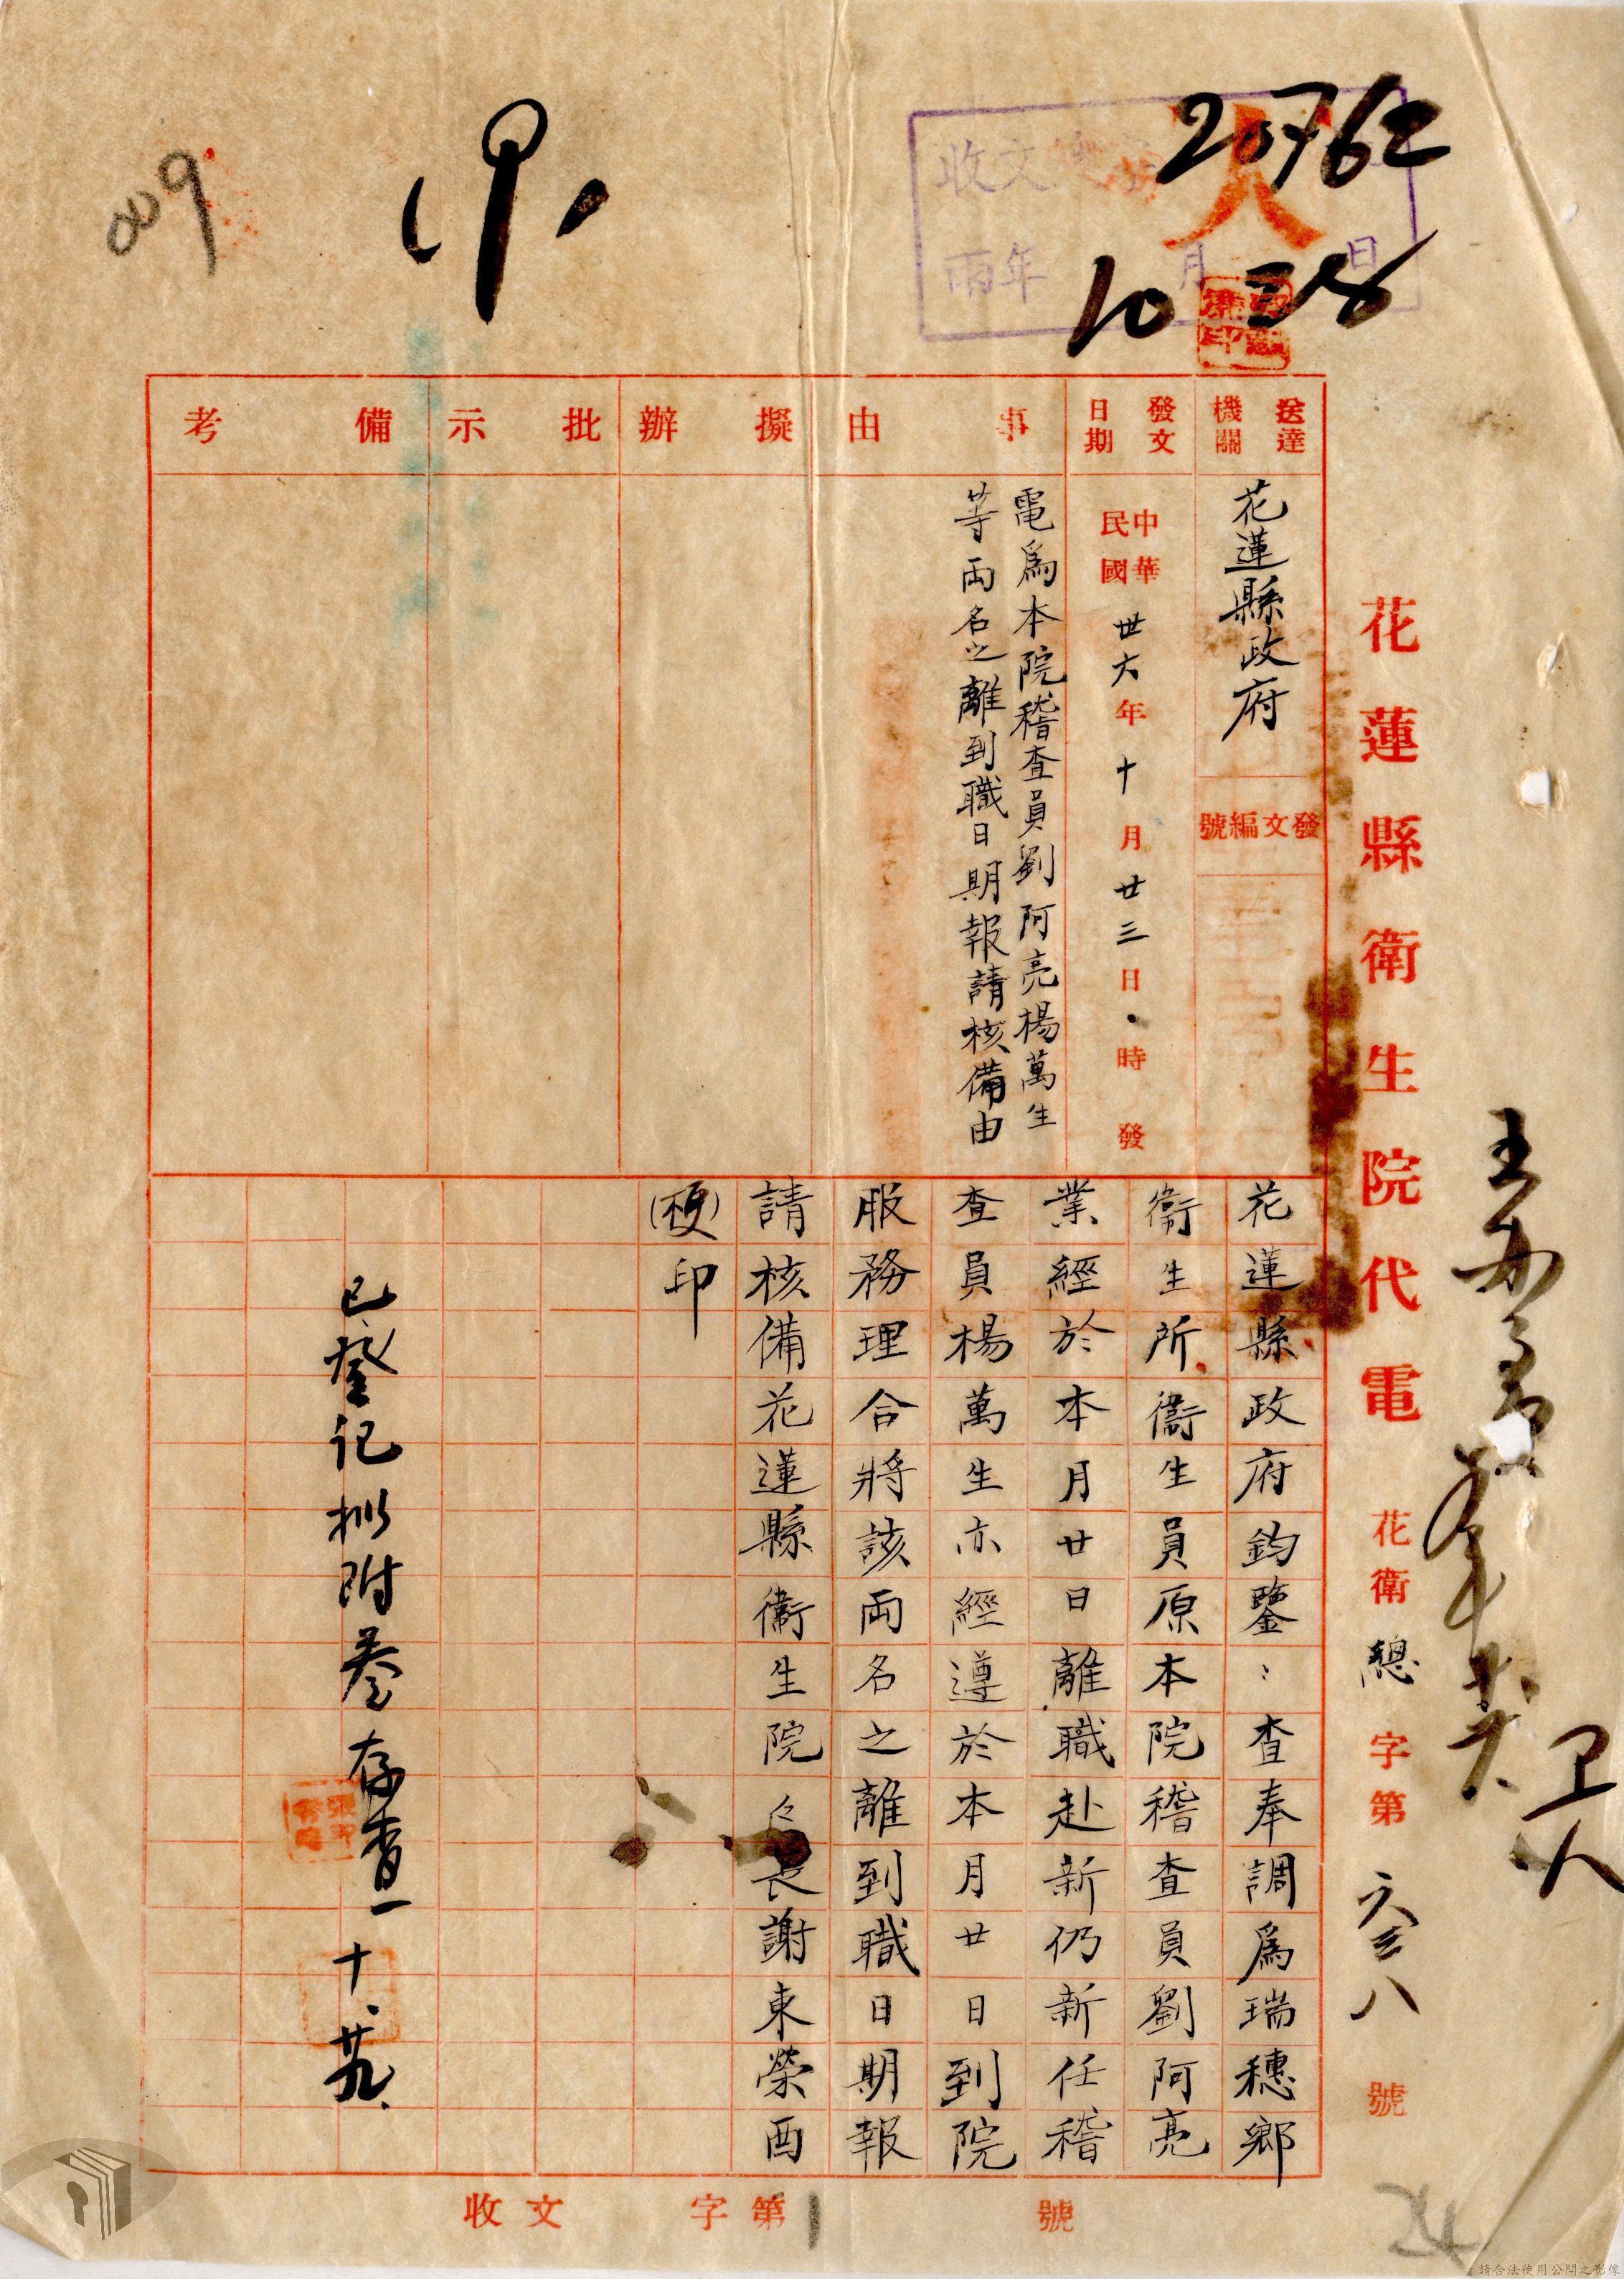 009
20762
收文
年 月 日
10 28
人
花蓮縣衛生院代電 花衛總字第六三八號
送達機關
花蓮縣政府
發文編號
發文日期
中華民國卅六年十月廿三日 時發
事由
電爲本院稽查員劉阿亮楊萬生
等両名之離到職日期報請核備由
擬辦
批示
備考
花蓮縣政府鈞鑒：查奉調爲瑞穗鄉
衛生所衛生員原本院稽查員劉阿亮
業經於本月廿日離職赴新仍新任稽
查員楊萬生亦經遵於本月廿日到院
服務理合將該両名之離到職日期報
請核備花蓮縣衛生院院長謝東榮酉
(梗)印
已登記擬附卷存查 十、廿九
收文 字第 號
24
請合法使用公開之影像